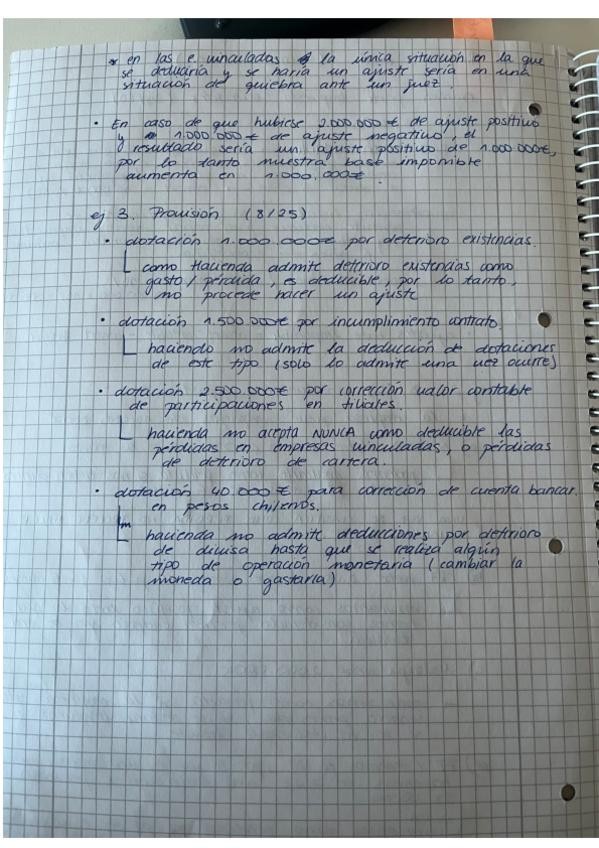 * en las e. vinculadas la única situación en la que
se deduciría y se haría un ajuste sería en una
situación de quiebra ante un juez.
• En caso de que hubiese 2.000.000 € de ajuste positivo
y 1.000.000 € de ajuste negativo, el
resultado sería un ajuste positivo de 1.000.000€,
por lo tanto nuestra base imponible
aumenta en 1.000.000€.
ej 3. Provisión (8/25)
• dotación 1.000.000€ por deterioro existencias.
como Hacienda admite deterioro existencias como
gasto / pérdida, es deducible, por lo tanto,
no procede hacer un ajuste
• dotación 1.500.000€ por incumplimiento contrato.
haciendo no admite la deducción de dotaciones
de este tipo (solo lo admite una vez ocurre)
• dotación 2.500.000€ por corrección valor contable
de participaciones en filiales.
hacienda no acepta NUNCA como deducible las
pérdidas en empresas vinculadas, o pérdidas
de deterioro de cartera.
• dotación 40.000 € para corrección de cuenta bancar.
en pesos chilenos.
hacienda no admite deducciones por deterioro
de divisa hasta que se realiza algún
tipo de operación monetaria (cambiar la
moneda o gastarla)